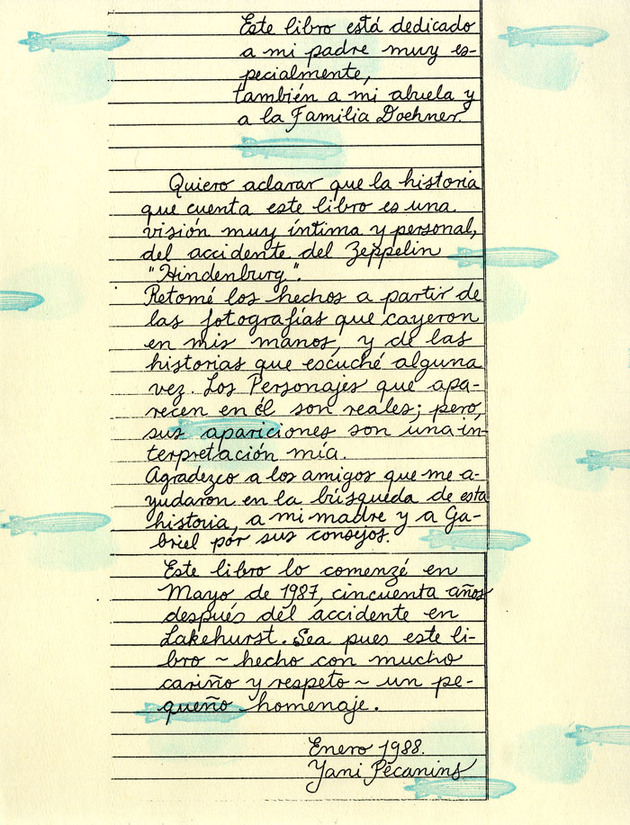 Este libro está dedicado
a mi padre muy es-
pecialmente,
también a mi abuela y
a la Familia Doehner
Quiero aclarar que la historia
que cuenta este libro es una
visión muy íntima y personal,
del accidente del Zeppelin
"Hindenburg".
Retomé los hechos a partir de
las fotografías que cayeron
en mis manos, y de las
historias que escuché alguna
vez. Los Personajes que apa-
recen en él son reales; pero,
sus apariciones son una in-
terpretación mía.
Agradezco a los amigos que me a-
yudaron en la búsqueda de esta
historia, a mi madre y a Ga-
briel por sus consejos.
Este libro lo comenzé en
Mayo de 1987, cincuenta años
después del accidente en
Lakehurst. Sea pues este li-
bro ~ hecho con mucho
cariño y respeto ~ un pe-
queño homenaje.
Enero 1988.
Yani Pecanins